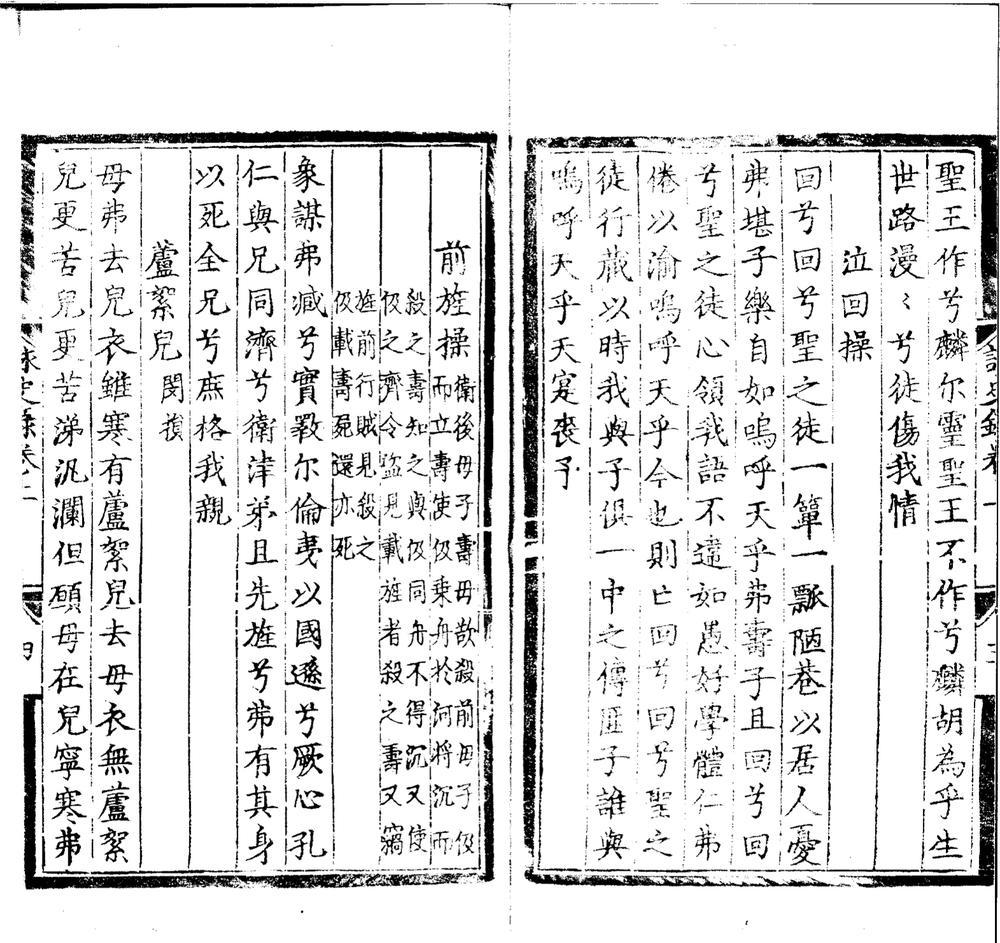 聖王作兮麟尔靈聖王不作兮麟胡為乎生
世路漫〻兮徒傷我情
泣回操
回兮回兮聖之徒一簞一瓢陋巷以居人憂
弗堪子樂自如嗚呼天乎弗壽子且回兮回
兮聖之徒心領我語不違如愚好學體仁弗
倦以渝嗚呼天乎今也則亡回兮回兮聖之
徒行蔵以時我與子俱一中之傳匪子誰與
嗚呼天乎天寔喪予
前旌操
衛後母子壽母欲殺前母子伋
而立壽使伋乗舟於河将沉而
殺之壽知之與伋同舟不得沉又使
伋之齊令盗見載旌者殺之壽又竊
旌前行賊見殺之
伋載壽屍還亦死
象謀弗臧兮實斁尔倫夷以國遜兮厥心孔
仁與兄同濟兮衛津弟且先旌兮弗有其身
以死全兄兮庶格我親
蘆絮兒
閔損
母弗去兒衣雖寒有蘆絮兒去母衣無蘆絮
兒更苦兒更苦涕汎瀾但願母在兒寧寒弗
詠史錄卷一
三
四